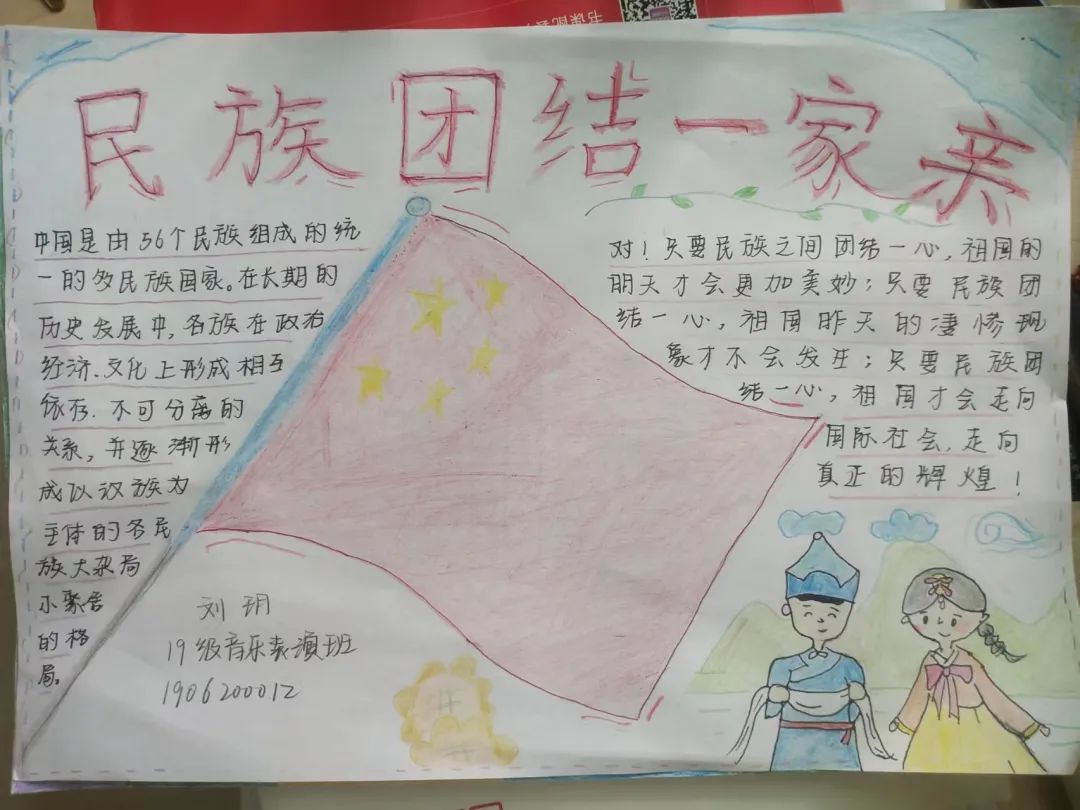 民族团结一家亲
中国是由56个民族组成的统
一的多民族国家。在长期的
历史发展中，各族在政治
经济、文化上形成相互
依存、不可分离的
关系，并逐渐形
成以汉族为
主体的各民
族大杂居
小聚居
的格
局。
对！只要民族之间团结一心，祖国的
明天才会更加美妙；只要民族团
结一心，祖国昨天的凄惨现
象才不会发生；只要民族团
结一心，祖国才会走向
国际社会，走向
真正的辉煌！
刘玥
19级音乐表演班
1906200012